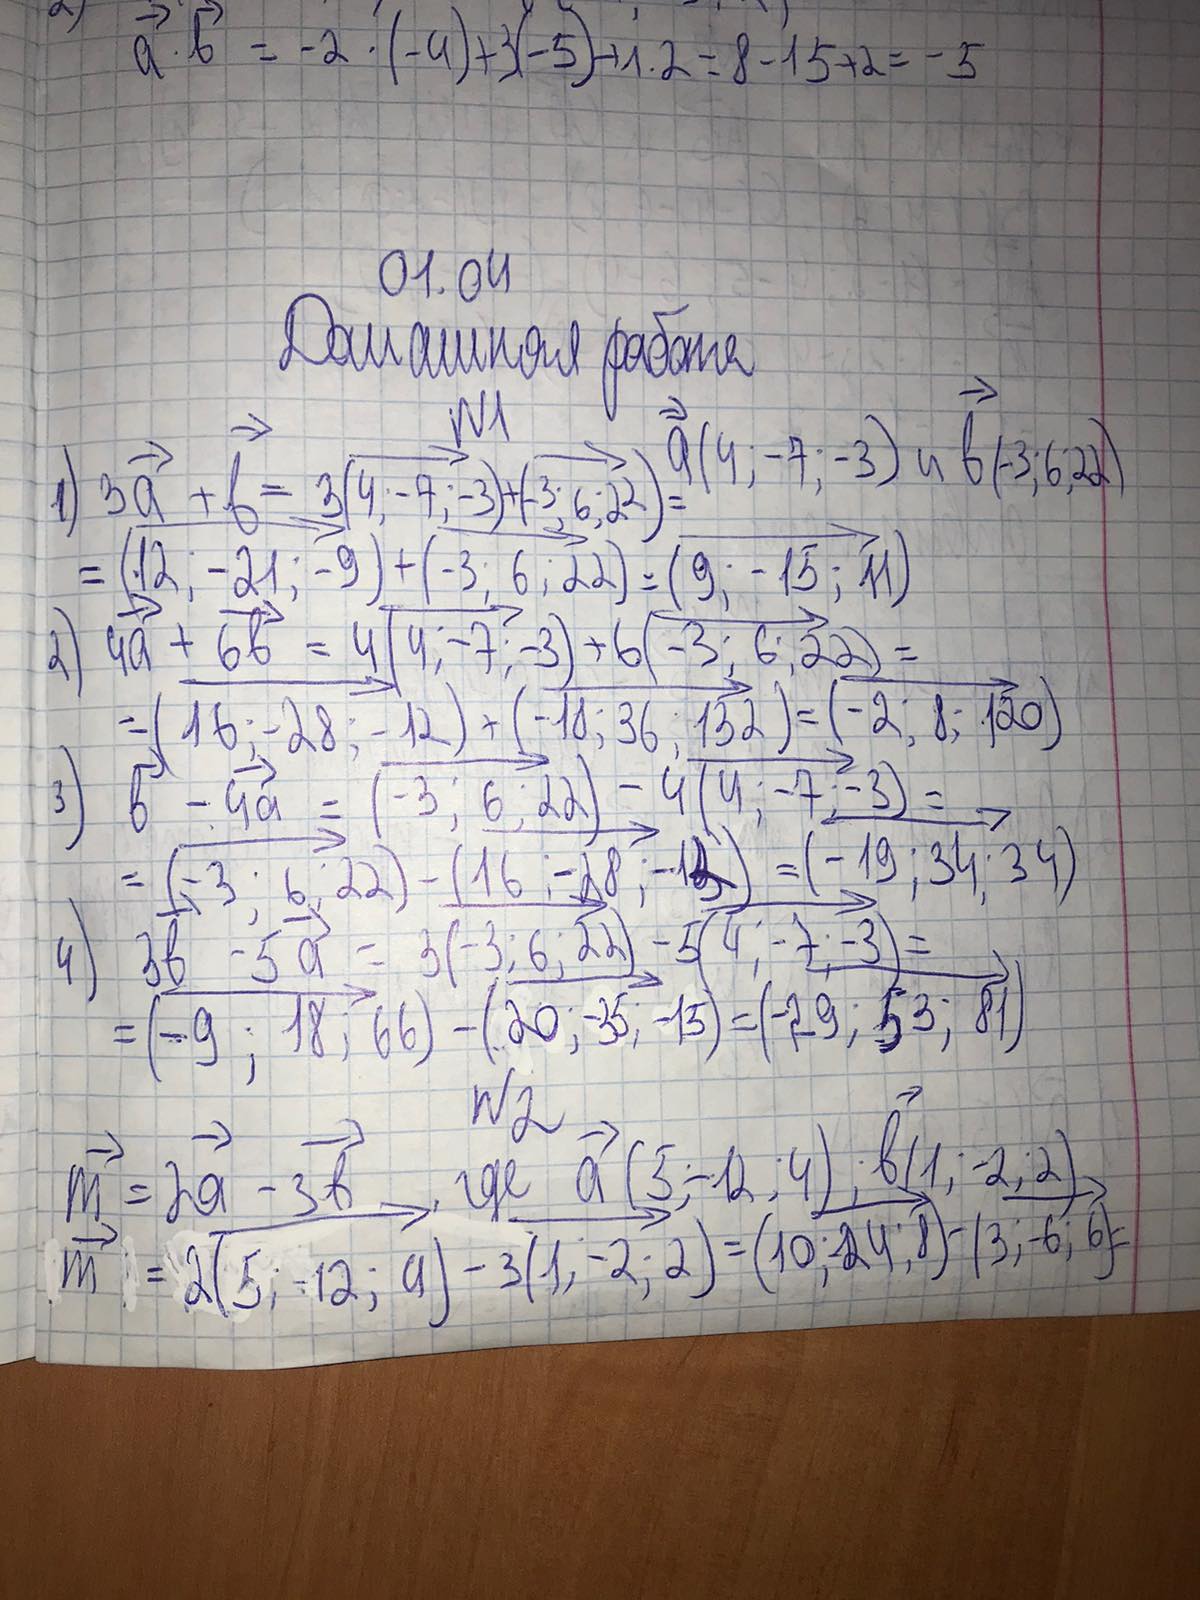 a⃗ · b⃗ = -2 · (-4)+3(-5)+1·2=8-15+2=-5
01.04
Домашняя работа
N1
a⃗(4;-7;-3) и b⃗(-3;6;22)
1) 3a⃗ + b⃗ = 3(4;-7;-3)+(-3;6;22)=
=(12;-21;-9)+(-3;6;22)=(9;-15;11)
2) 4a⃗ + 6b⃗ = 4(4;-7;-3)+6(-3;6;22)=
=(16;-28;-12)+(-18;36;132)=(-2;8;120)
3) b⃗ - 4a⃗ = (-3;6;22) - 4(4;-7;-3)=
=(-3;6;22)-(16;-28;-12)=(-19;34;34)
4) 3b⃗ - 5a⃗ = 3(-3;6;22)-5(4;-7;-3)=
=(-9;18;66)-(20;-35;-15)=(-29;53;81)
N2
m⃗ = 2a⃗ - 3b⃗, где a⃗(5;-12;4); b⃗(1;-2;2)
m⃗ = 2(5;-12;4)-3(1;-2;2)=(10;-24;8)-(3;-6;6)=